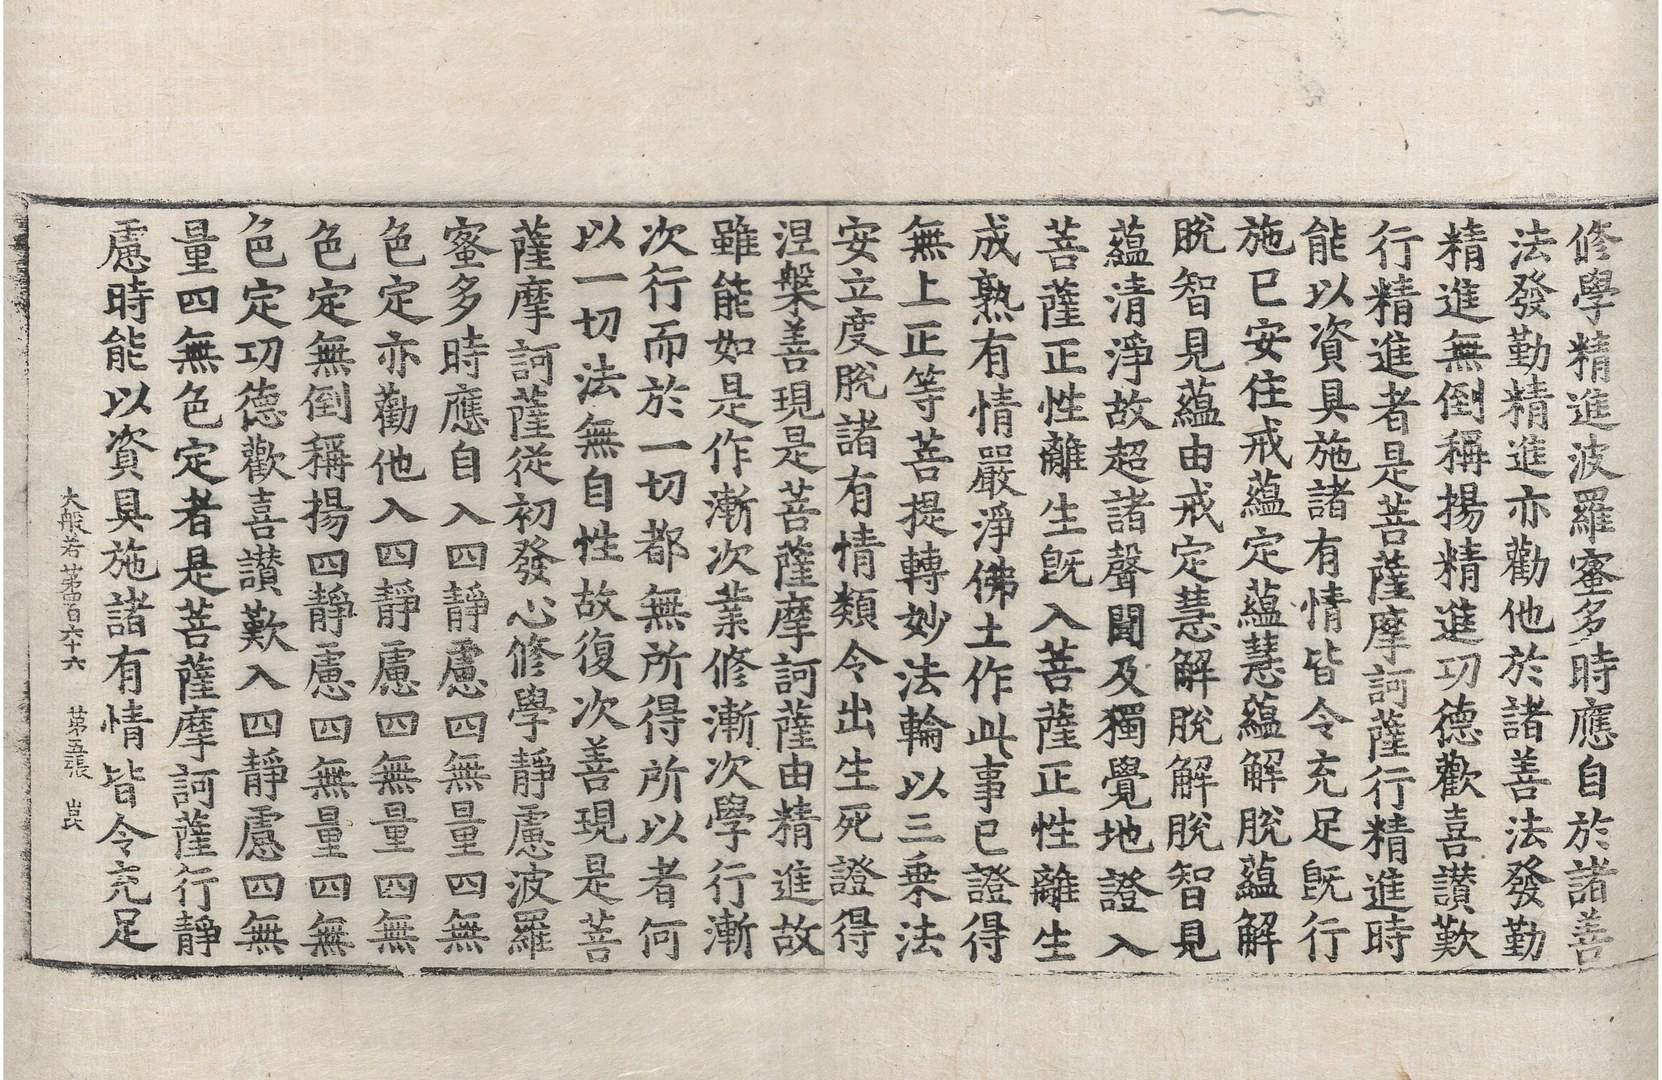 修學精進波羅蜜多時應自於諸善
法發勤精進亦勸他於諸善法發勤
精進無倒稱揚精進功德歡喜讃歎
行精進者是菩薩摩訶薩行精進時
能以資具施諸有情皆令充足既行
施已安住戒蘊定蘊慧蘊解脫蘊解
脫智見蘊由戒定慧解脫解脫智見
蘊清淨故超諸聲聞及獨覺地證入
菩薩正性離生既入菩薩正性離生
成熟有情嚴淨佛土作此事已證得
無上正等菩提轉妙法輪以三乗法
安立度脫諸有情類令出生死證得
涅槃善現是菩薩摩訶薩由精進故
雖能如是作漸次業修漸次學行漸
次行而於一切都無所得所以者何
以一切法無自性故復次善現是菩
薩摩訶薩從初發心修學靜慮波羅
蜜多時應自入四靜慮四無量四無
色定亦勸他入四靜慮四無量四無
色定無倒稱揚四靜慮四無量四無
色定功德歡喜讃歎入四靜慮四無
量四無色定者是菩薩摩訶薩行靜
慮時能以資具施諸有情皆令充足
大般若第四百六十六 第五張 崑